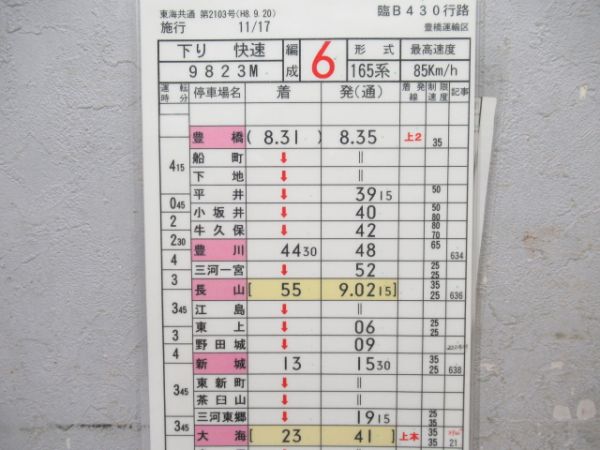 東海共通 第2103号(H8.9.20) 臨B430行路
施行 11/17 豊橋運輸区
下り 快速 編成 6 形式 最高速度
9823M 165系 85Km/h
運転時分 停車場名 着 発(通) 着発線 制限速度 記事
豊橋 (8.31) 8.35 上2 35
船町 ↓ ||
4 15
下地 ↓ ||
平井 ↓ 39 15 50
0 45
小坂井 ↓ 40 50 80
2
牛久保 ↓ 42 80 70
2 30
豊川 44 30 48 65 634
4
三河一宮 ↓ 52 25 25
3
長山 [55 9.02 15] 35 25 636
江島 ↓ ||
3 45
東上 ↓ 06 25 25
3
野田城 ↓ 09
4
新城 13 15 30 35 25 638
東新町 ↓ ||
3 45
茶臼山 ↓ ||
三河東郷 ↓ 19 15 25 35
3 45
大海 [23 41] 上本 35 35 21